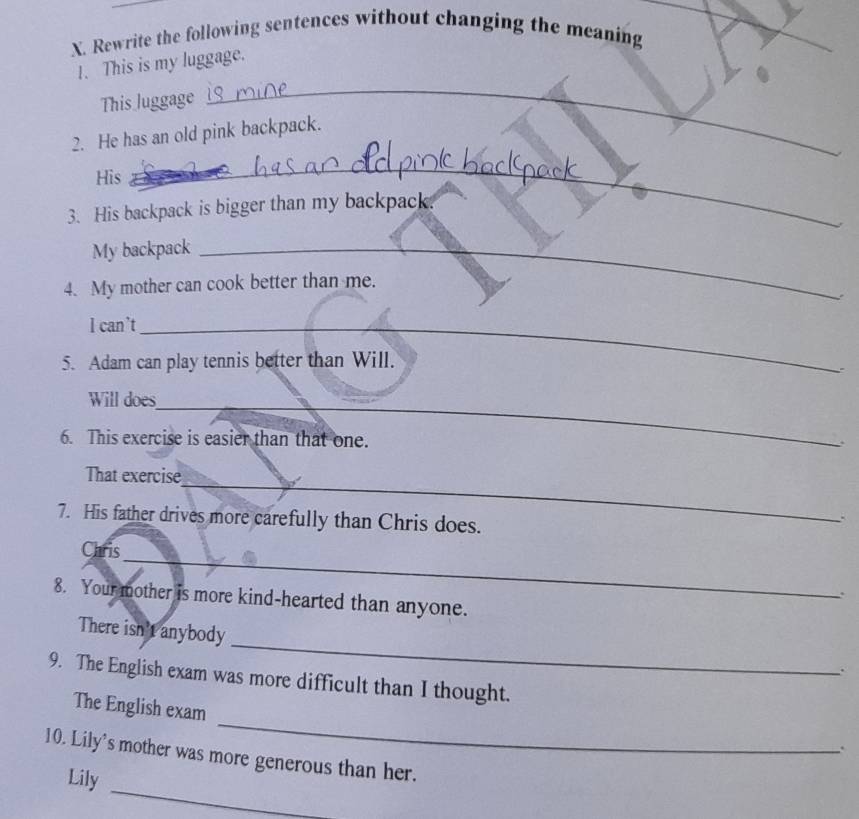 X. Rewrite the following sentences without changing the meaning
1. This is my luggage.
This luggage is mine
2. He has an old pink backpack.
His has an old pink backpack
3. His backpack is bigger than my backpack.
My backpack
4. My mother can cook better than me.
I can't
5. Adam can play tennis better than Will.
Will does
6. This exercise is easier than that one.
That exercise
7. His father drives more carefully than Chris does.
Chris
8. Your mother is more kind-hearted than anyone.
There isn't anybody
9. The English exam was more difficult than I thought.
The English exam
10. Lily's mother was more generous than her.
Lily
ĐẶNG THỊ LẠI